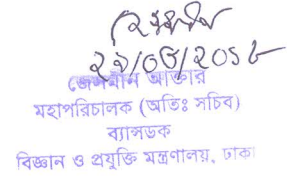 ২১/০৫/২০১৮
জেসমীন আক্তার
মহাপরিচালক (অতিঃ সচিব)
ব্যান্সডক
বিজ্ঞান ও প্রযুক্তি মন্ত্রণালয়, ঢাকা